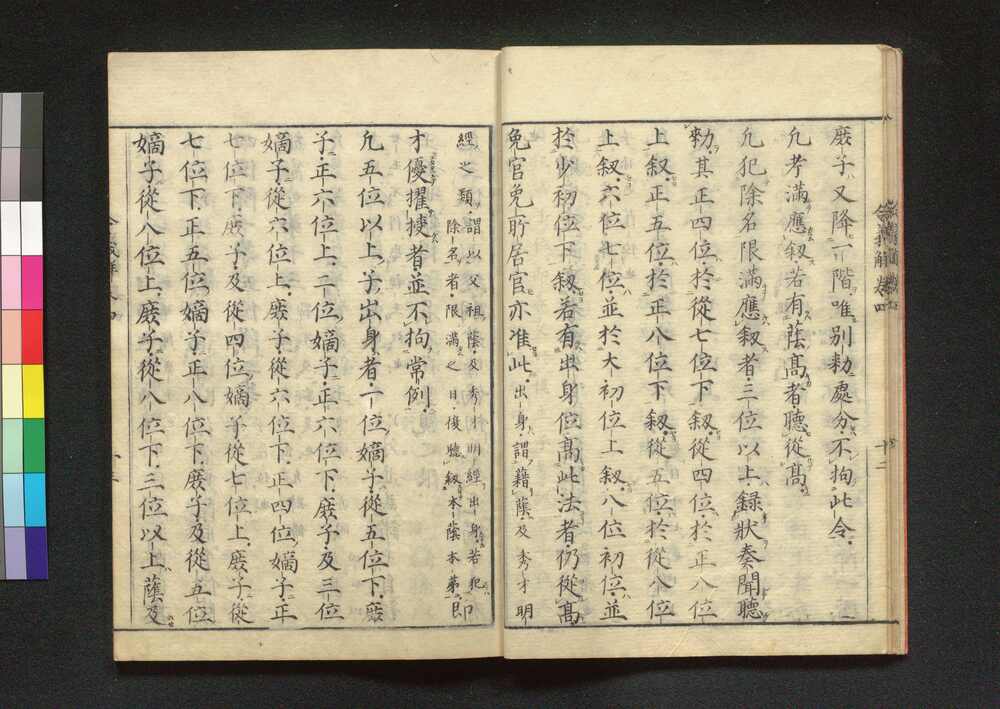 庻子又降一階唯別勅處分不拘此令
凢考滿應叙若有蔭髙者聽從髙
凢犯除名限滿應叙者三位以上錄狀奏聞聽
勅其正四位於從七位下叙從四位於正八位
上叙正五位於正八位下叙從五位於從八位
上叙六位七位並於大初位上叙八位初位並
於少初位下叙若有出身位髙此法者仍從髙
免官免所居官亦准此出身謂藉蔭及秀才明
經之類謂以父祖蔭及秀才明經出身若犯
除名者限滿之日後聽叙本蔭本苐
才優擢授者並不拘常例
凢五位以上子出身者一位嫡子從五位下庻
子正六位上二位嫡子正六位下庻子及三位
嫡子從六位上庻子從六位下正四位嫡子正
七位下庻子及從四位嫡子從七位上庻子從
七位下正五位嫡子正八位下庻子及從五位
嫡子從八位上庻子從八位下三位以上蔭及